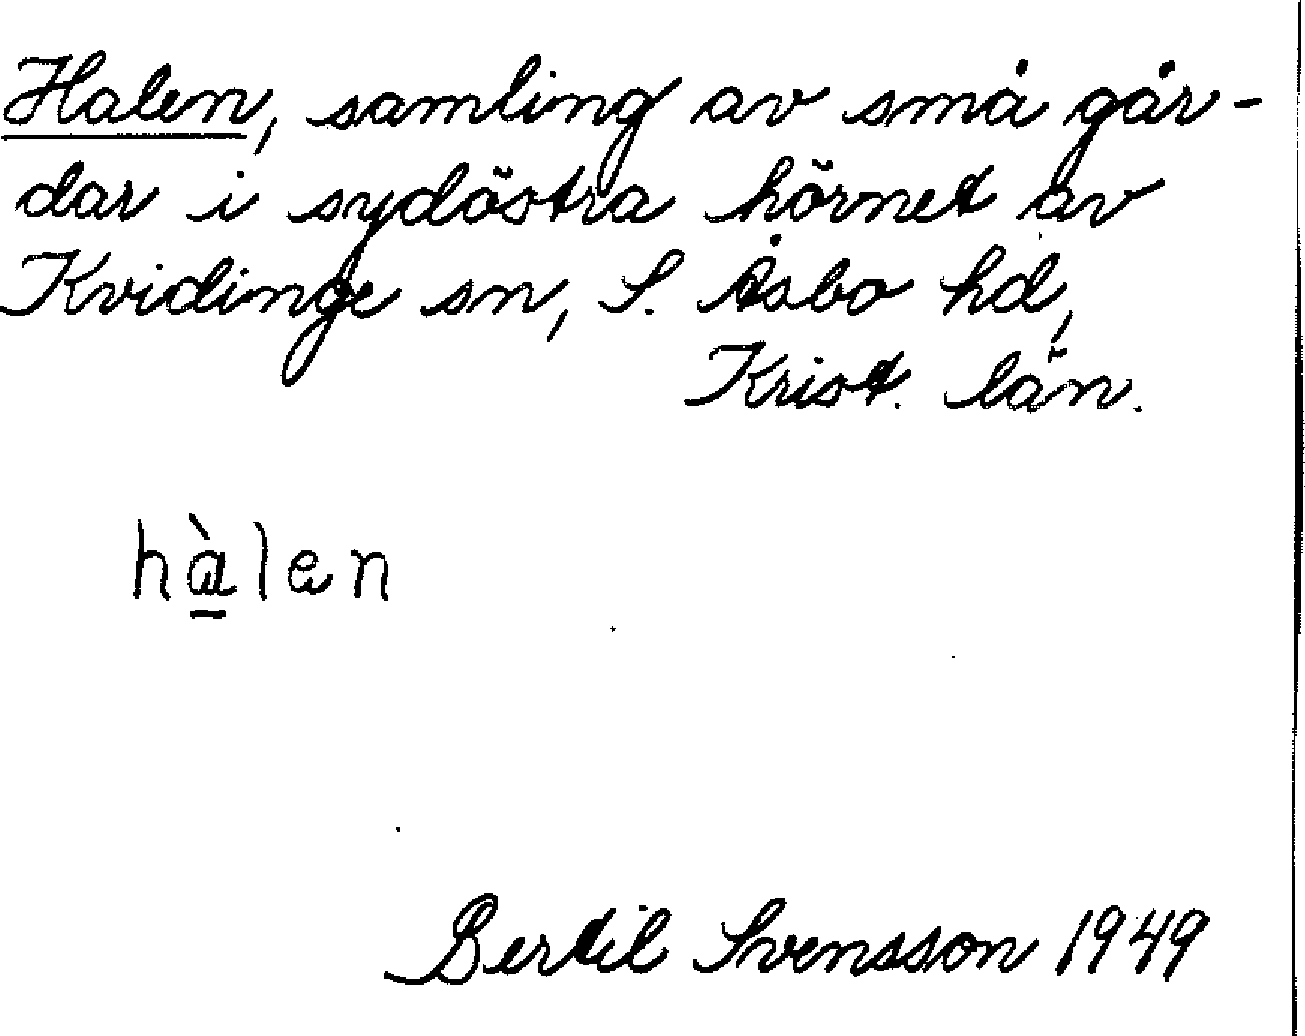 Halen, samling av små går-
dar i sydöstra hörnet av
Kvidinge sn, S. Åsbo hd,
Krist. län.
hàlen
Bertil Svensson 1949